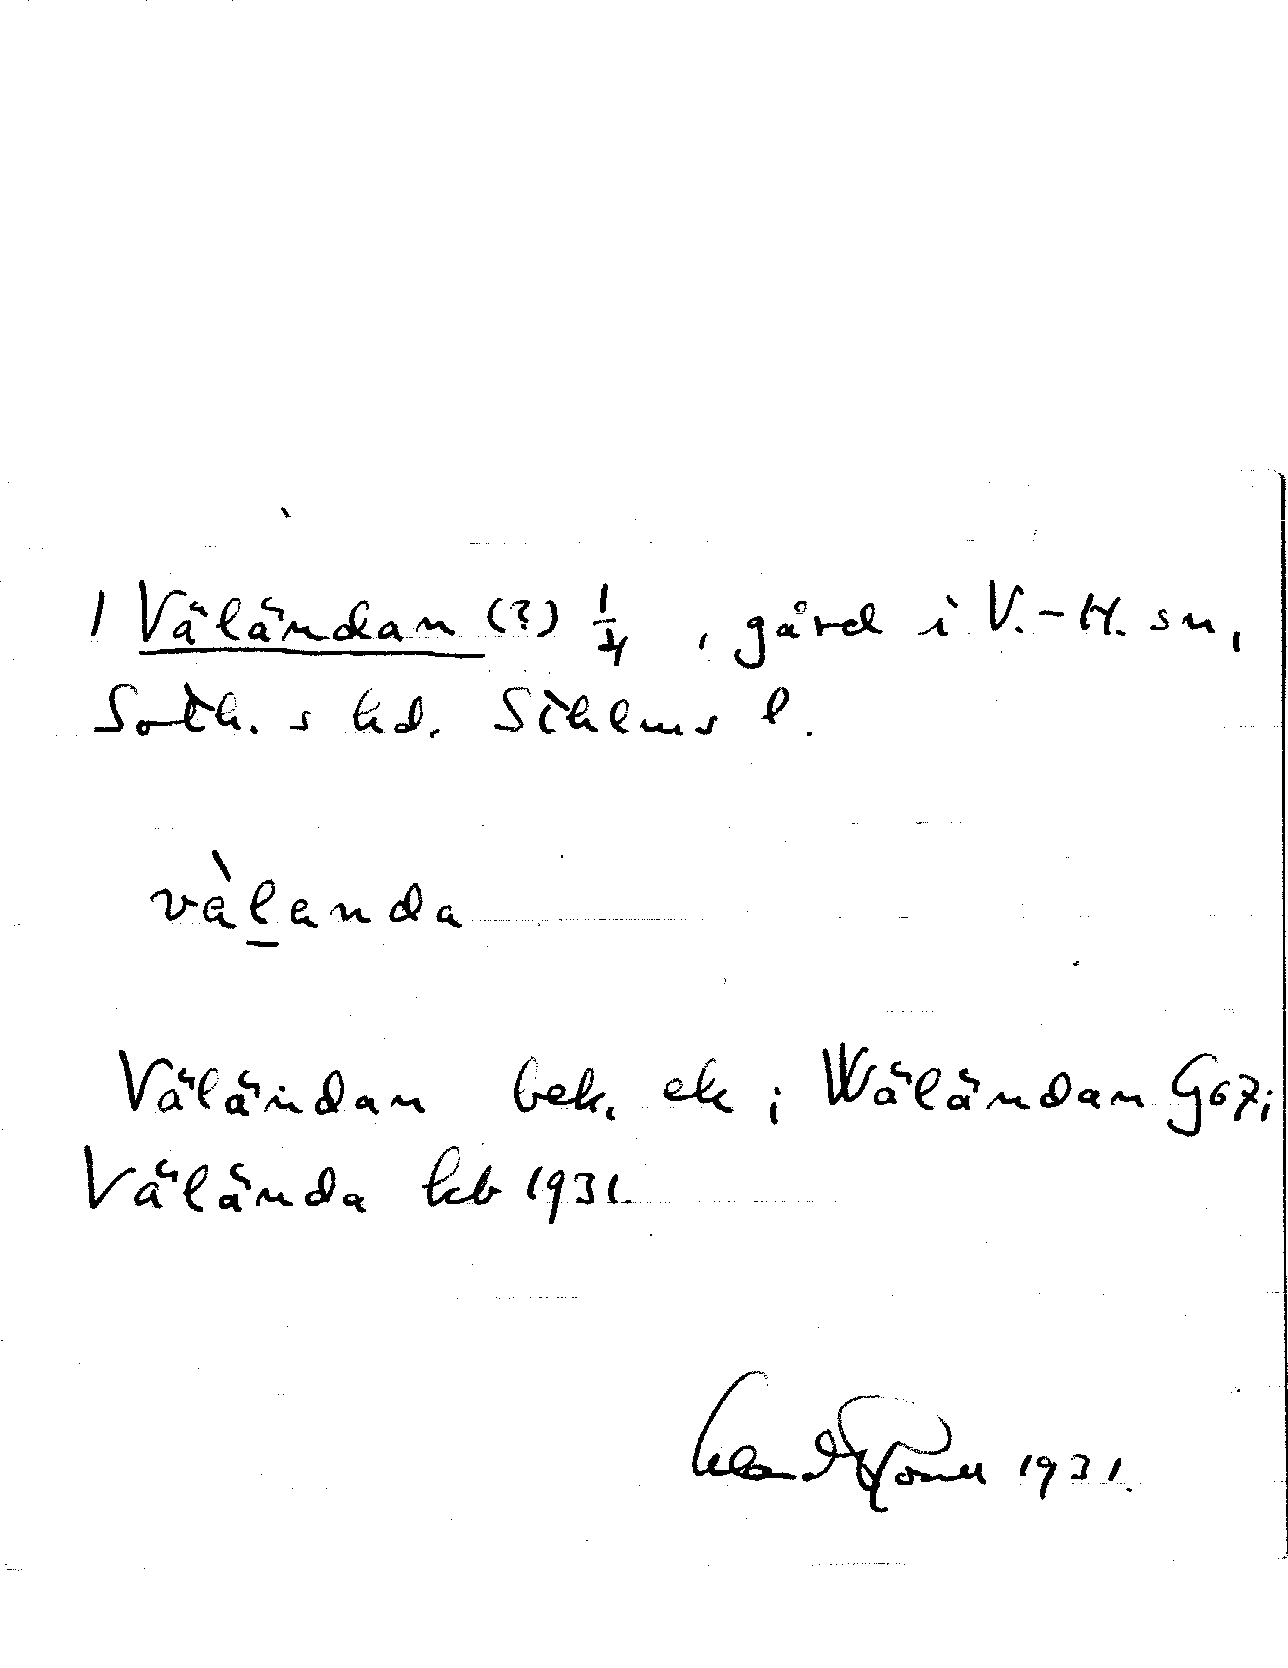 1 Väländan (?) 1/4, gård i V.-H. sn,
Soth. s hd. Sthlms l.
vàlanda
Väländan bek. ek; Wäländan G67;
Välända kb 1931.
1931.